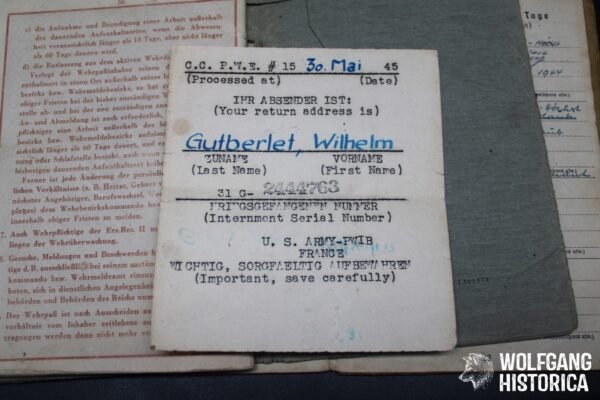 56
c) die Aufnahme und Beendigung einer Arbeit außerhalb
des dauernden Aufenthaltsortes, wenn die Abwesen-
heit voraussichtlich länger als 14 Tage, aber nicht länger
als 60 Tage dauern wird.
d) die Entlassung aus dem aktiven Wehrd
Verlegt der Wehrpaßinhaber seinen d
enthaltsort in einen Ort außerhalb seines
bezirks bzw. Wehrmeldebezirks, so hat er
obiger Fristen bei der bisher zuständigen W
stelle ab- und bei der neu zuständigen anz
An- und Abmeldung ist auch erforderlich,
pflichtige eine Arbeit außerhalb des bish
bezirks bzw. Wehrmeldebezirks aufnim
sichtlich länger als 60 Tage dauert, und er
ung oder Schlafstelle bezieht, auch wenn
bisherigen dauernden Aufenthaltsort beibeh
Ferner ist jede Änderung der persönli
lichen Verhältnisse (z. B. Heirat, Geburt v
nächster Angehöriger, Berufswechsel,
platzes) dem Wehrbezirkskommando bzw.
innerhalb obiger Fristen zu melden.
7. Auch Wehrpflichtige der Ers.Res. II un
liegen der Wehrüberwachung.
8. Gesuche, Meldungen und Beschwerden
tige d.B. ausschließlich bei seinem zustän
kommando bzw. Wehrmeldeamt einzur
boten, sich in dienstlichen Angelegenhei
behörden und Behörden des Reichs unm
9. Der Wehrpaß ist nach Ausscheiden au
verhältnis vom Inhaber zeitlebens au
tragungen werden dann nicht mehr vor
C.C. P.W.E. # 15 30. Mai 45
(Processed at) (Date)
IHR ABSENDER IST:
(Your return address is)
Gutberlet, Wilhelm
ZUNAME VORNAME
(Last Name) (First Name)
31 G- 2444763
KRIEGSGEFANGENEN NUMMER
(Internment Serial Number)
U. S. ARMY-PWIB
FRANCE
WICHTIG, SORGFAELTIG AUFBEWAHREN
(Important, save carefully)
Tage
1944
WOLFGANG
HISTORICA